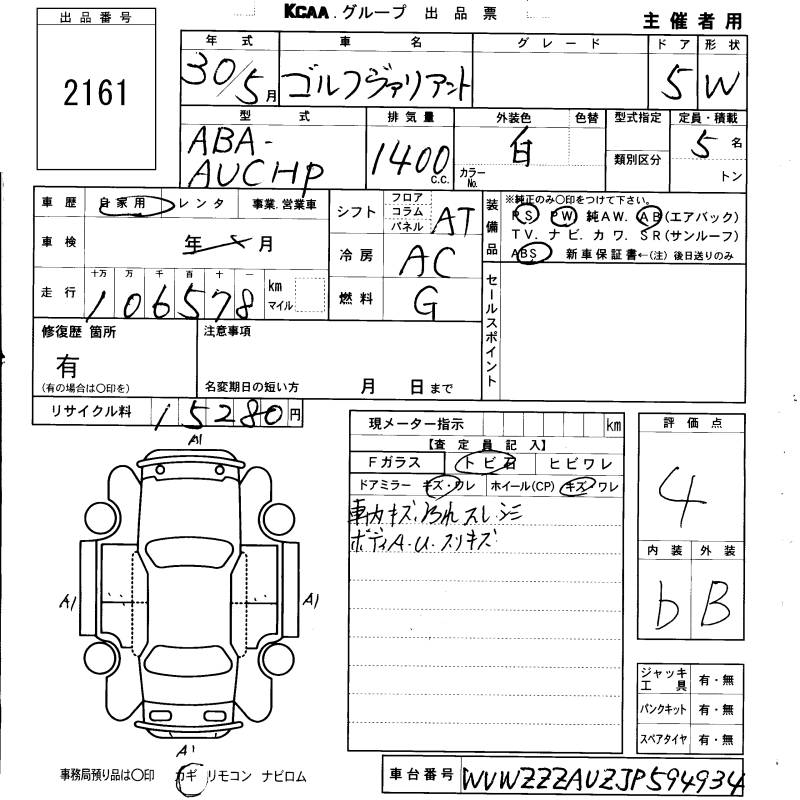 KCAA.グループ 出品票
主催者用
出品番号
2161
年式 車名 グレード ドア 形状
30/5月 ゴルフヴァリアント 5 W
型式 排気量 外装色 色替 型式指定 定員・積載
ABA-AUCHP 1400 c.c. 白 カラーNo. 類別区分 5名
トン
車歴 自家用 レンタ 事業.営業車
車検 年 月
走行 十万 万 千 百 十 一
106578 km マイル
シフト フロア コラム パネル AT
冷房 AC
燃料 G
装備品
※純正のみ〇印をつけて下さい。
PS PW 純AW. AB(エアバック)
TV. ナビ. カワ. SR(サンルーフ)
ABS 新車保証書←(注) 後日送りのみ
セールスポイント
修復歴 箇所 注意事項
有
(有の場合は〇印を) 名変期日の短い方 月 日まで
リサイクル料 15280円
現メーター指示 km
【査定員記入】
Fガラス トビ石 ヒビワレ
ドアミラー キズ・ワレ ホイール(CP) キズ・ワレ
車内キズ.汚れ スレ シミ
ボディA.U.スリキズ
評価点
4
内装 外装
b B
A1
A1
A1
A1
ジャッキ工具 有・無
パンクキット 有・無
スペアタイヤ 有・無
事務局預り品は〇印 カギ リモコン ナビロム
車台番号 WVWZZZAUZJP594934